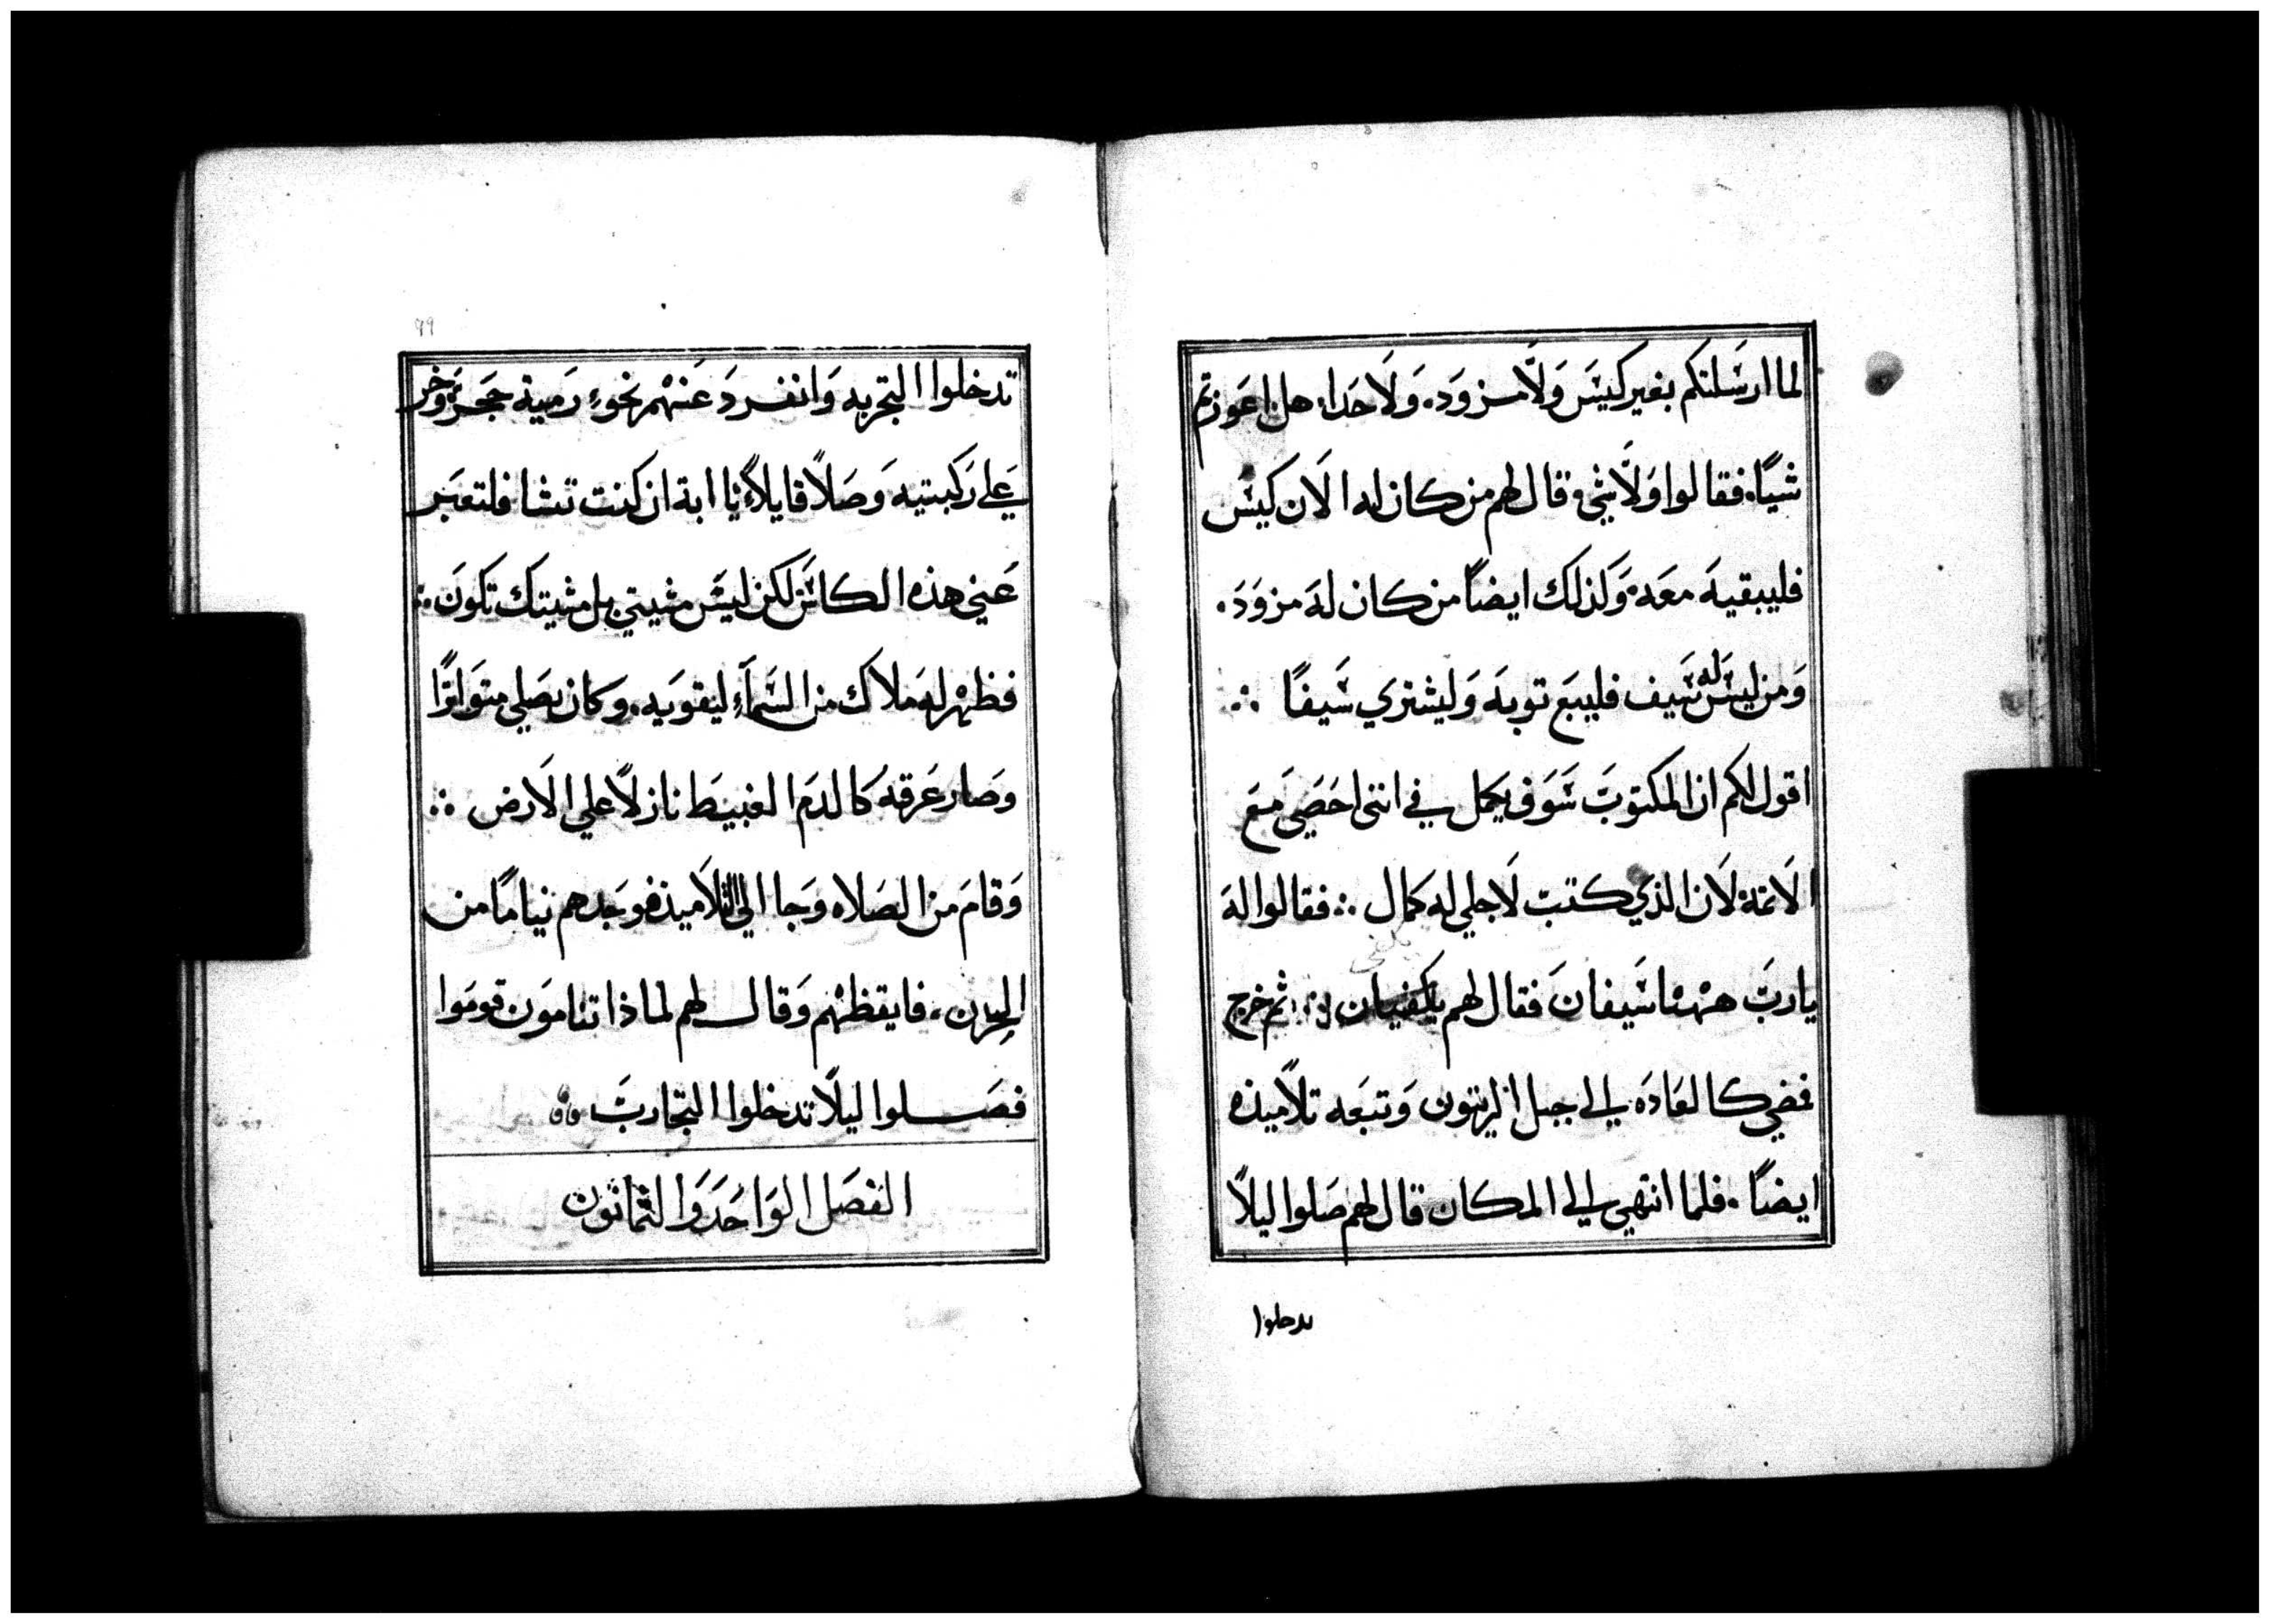 لما ارسلتكم بغير كيس ولا مزود. ولا حدا. هل اعوزتم
شيًا. فقالوا ولا شي، قال لهم من كان له الان كيس
فليبقيه معه. وكذلك ايضًا من كان له مزود.
ومن ليس له سيف فليبع توبه وليشتري سيفًا ∴
اقول لكم ان المكتوب سوف يكمل في انني احصي مع
الاتمة لان الذي كتب لاجلي له كمال ∴ فقالوا له
يارب ههنا سيفان فقال لهم يكفيان ∴ ثم خرج
يكفي
فمضي كالعاده الي جبل الزيتون وتبعه تلاميذه
ايضًا. فلما انتهي الي المكان قال لهم صلوا ليلًا
تدخلوا
٩٩
تدخلوا التجربه وانفرد عنهم نحوء رمية حجرة وخر
علي ركبتيه وصلًا قايلًا يا ابة ان كنت تشا فلتعبر
عني هذه الكاس لكن ليس مشيتي بل مشيتك تكون ∴
فظهر له ملاك من السمآء ليقويه. وكان يصلي متواترًا
وصار عرقه كالدم الغبيط نازلًا علي الارض ∴
وقام من الصلاه وجا الي التلاميذ فوجدهم نيامًا من
الحزن، فايقظهم وقال لهم لماذا تنامون قوموا
فصلوا ليلًا تدخلوا التجارب
الفصل الواحد والثمانون